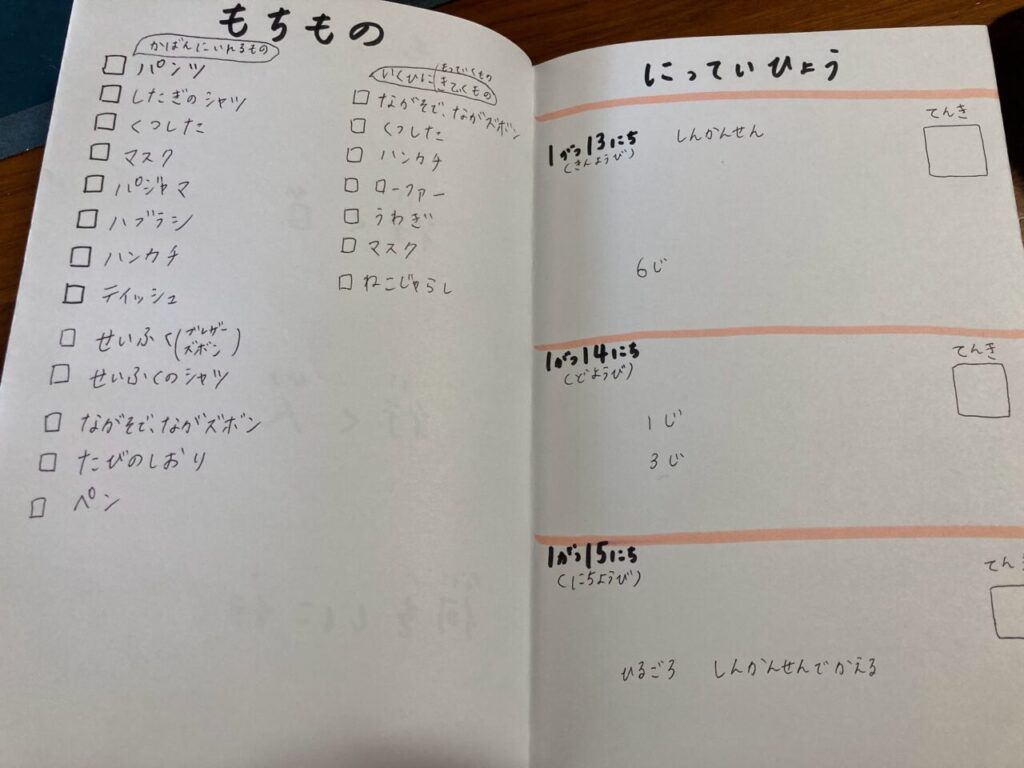 もちもの
かばんにいれるもの
パンツ
したぎのシャツ
くつした
マスク
パジャマ
ハブラシ
ハンカチ
ティッシュ
せいふく(ブレザー ズボン)
せいふくのシャツ
ながそで、ながズボン
たびのしおり
ペン
もっていくもの
いくひにきていくもの
ながそで、ながズボン
くつした
ハンカチ
ローファー
うわぎ
マスク
ねこじゃらし
にっていひょう
1がつ13にち
(きんようび)
しんかんせん
てんき
6じ
1がつ14にち
(どようび)
てんき
1じ
3じ
1がつ15にち
(にちようび)
てんき
ひるごろ しんかんせんでかえる